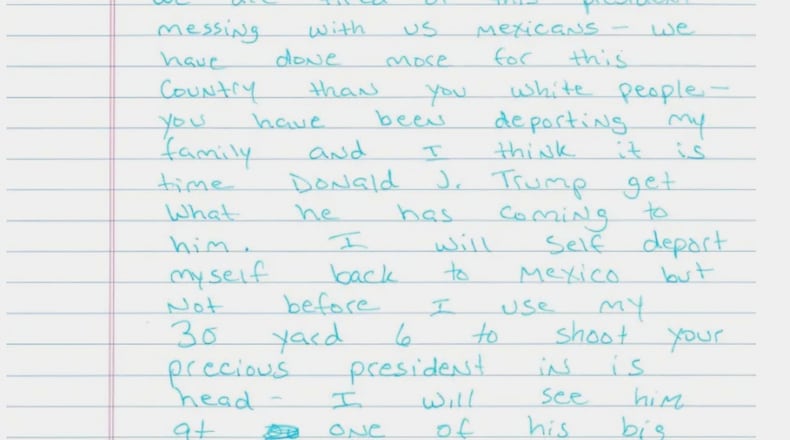 we are tired of this president
messing with us mexicans - we
have done more for this
Country than you white people -
you have been deporting my
family and I think it is
time Donald J. Trump get
What he has coming to
him. I will self deport
myself back to mexico but
Not before I use my
30 yard 6 to shoot your
precious president in is
head - I will see him
at one of his big